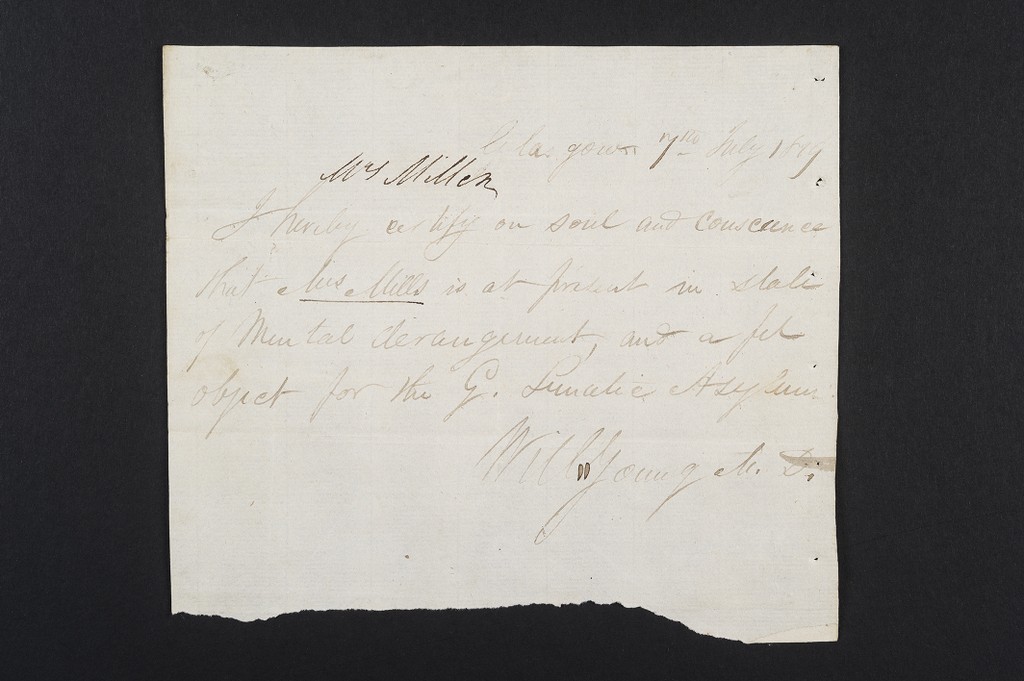 Glasgow 7th July 1819
Mrs Miller
I hereby certify on soul and conscience
that Mrs Mills is at present in state
of Mental derangement, and a fit
object for the G. Lunatic Asylum
Will Young M. D.